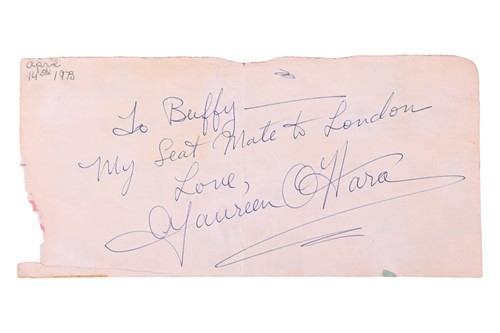 April
14th 1978
To Buffy —
My Seat Mate to London
Love,
Maureen O'Hara